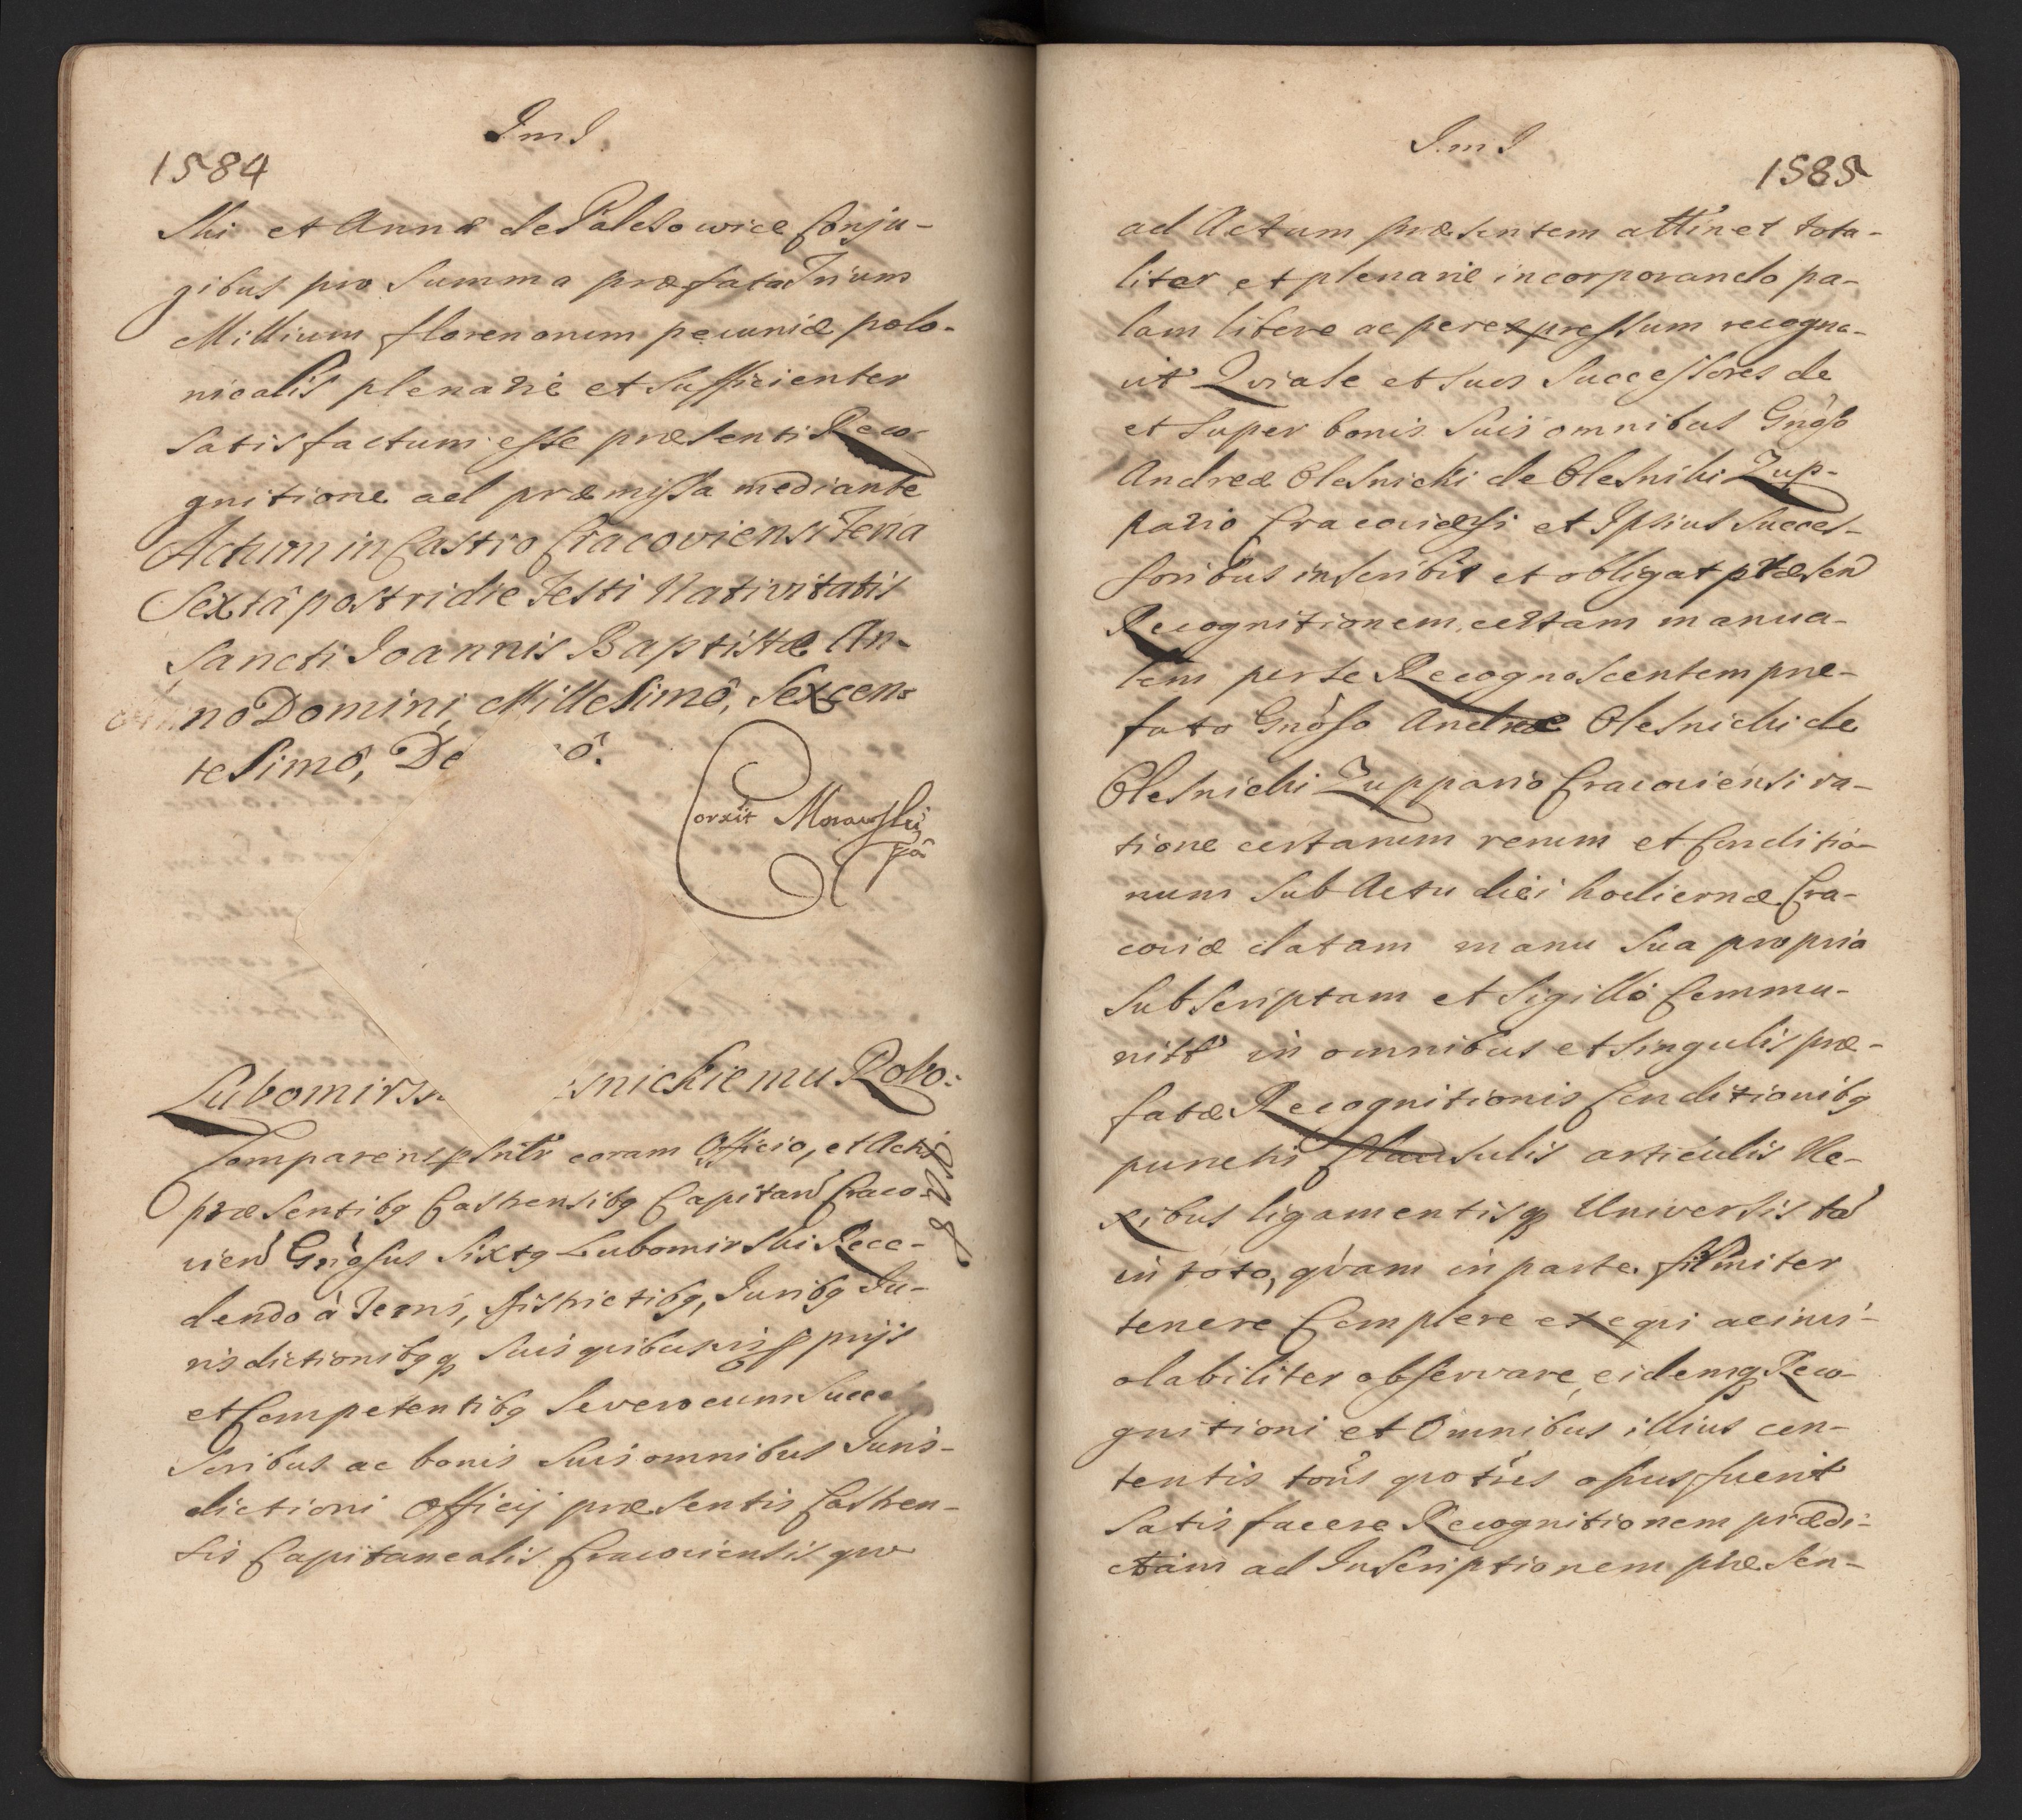 JmJ.
1584
ski et Annæ de Paleśowice Conju-
gibus pro Summa præfata Trium
Millium florenorum pecuniæ polo-
nicalis plenariè et Sufficienter
Satisfactum esse præsenti Reco-
gnitione ad præmissa mediante
Actum in Castro Cracoviensi Feria
Sexta postridie Festi Nativitatis
Sancti Joannis Baptistæ An-
no Domini Millesimô, Sexcen-
tesimô, De ô.
Corxit Morawski
Lubomirs snickiemu Robo:
Comparens psntr coram Officio, et Actis
præsentibg Castrensibg Capitan Craco-
vien Gnosus Sixtg Lubomirski Rece-
dendo à Terris, districtibg, Juribg Ju-
risdictionibgq Suis quibusvis pprijs
et Competentibg Se vero cum Succes
soribus ac bonis Suis omnibus Juris-
dictioni Officij præsentis Castren-
sis Capitanealis Cracoviensis quo
J.m.J
1585
ad Actum præsentem attinet tota-
liter et plenariè incorporando pa-
lam libere ac per expressum recogno-
vit Quia se et suos Successores de
et Super bonis Suis omnibus Gnoso
Andreæ Olesnicki de Olesniki Zup-
pario Cracoviensi et Ipsius Succes-
soribus inscribit et obligat præsen
Recognitionem certam manua-
lem per se Recognoscentem præ-
fato Gnoso Andreæ Olesnicki de
Olesnicki Zuppario Cracoviensi ra-
tione certarum rerum et Conditio-
num Sub Actu diei hodiernæ Cra-
coviæ datam manu Sua propria
Subscriptam et Sigillô Commu-
nitt in omnibus et Singulis præ-
fatæ Recognitionis Conditionibg
punctis Clausulis articulis Ne-
xibus ligamentisq Universis ta
in toto, qvam in parte firmiter
tenere Complere exeqvi ac invi-
olabiliter observare, eidemq Reco-
gnitioni et Omnibus illius con-
tentis tots quoties opus fuerit
Satisfacere Recognitionem prædi-
ctam ad Inscriptionem præsen-